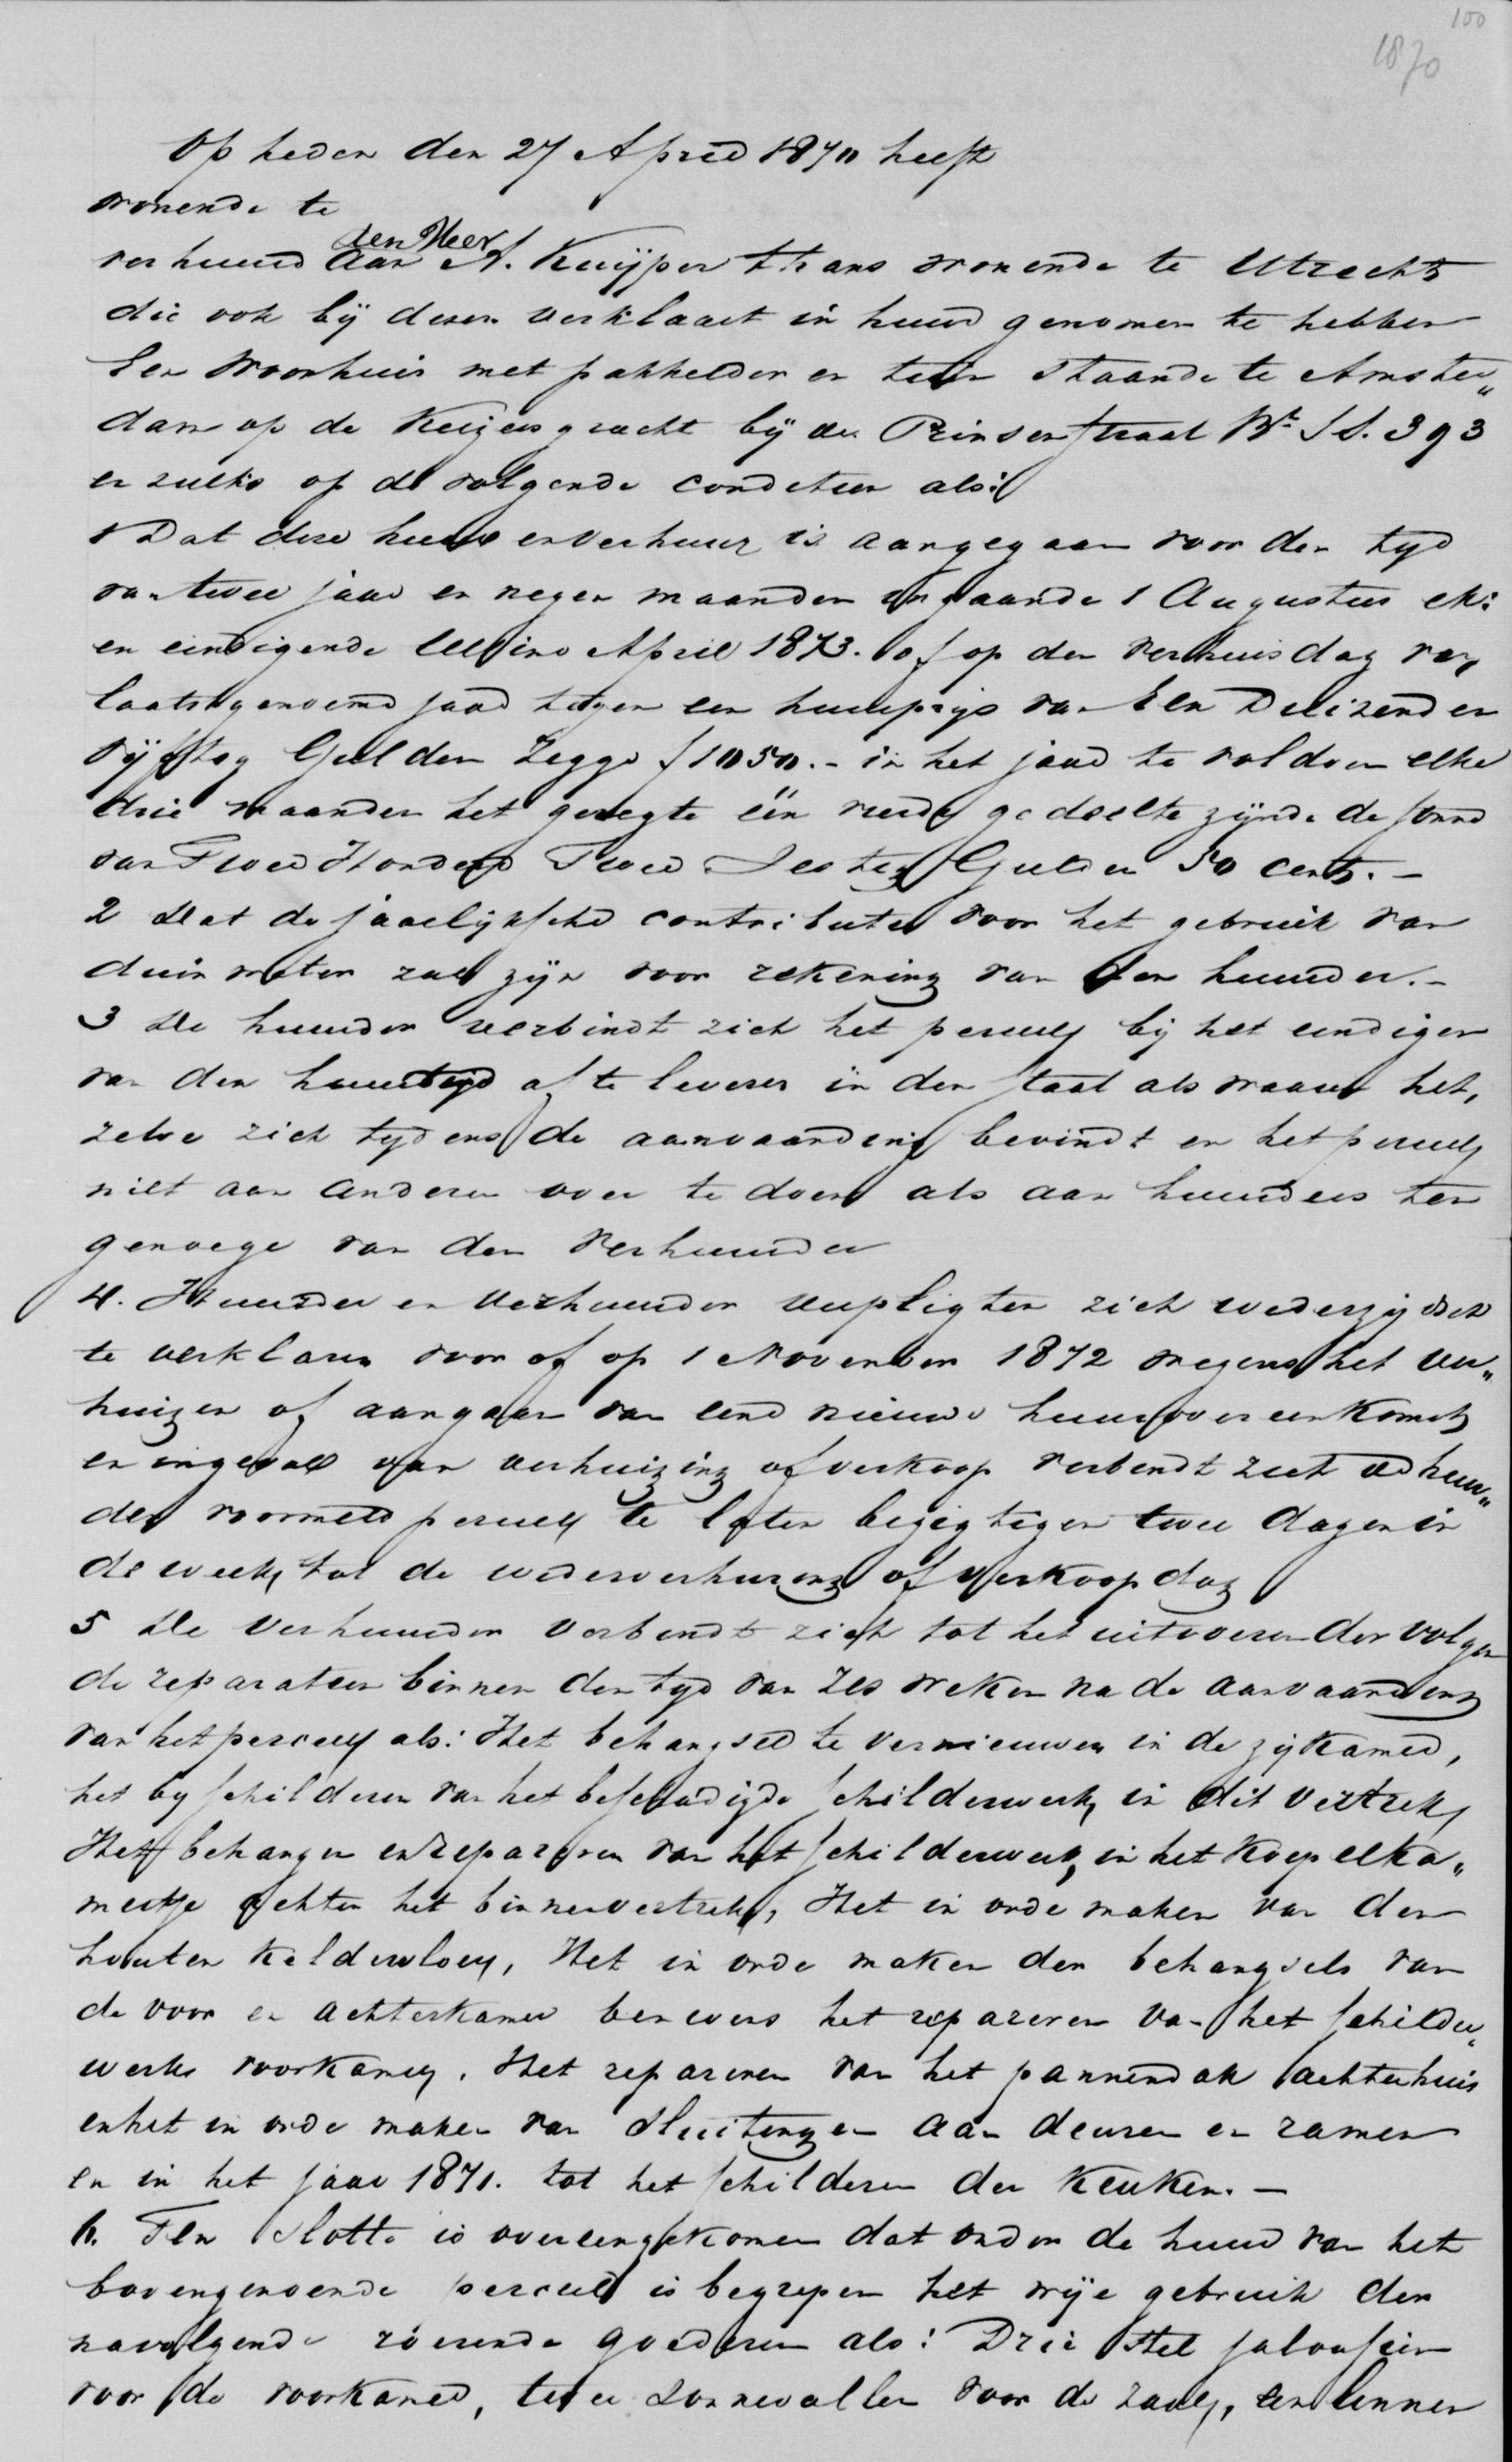 100
1870
Op heden den 27 April 1870 heeft
wonende te
verhuurd aan den Heer A. Kuijper thans wonende te Utrecht
die ook bij dezen verklaart in huur genomen te hebben
Een Woonhuis met pakkelder en tuin staande te Amster„
dam op de Keizersgracht bij de Prinsenstraat Bt SS. 393
en zulks op de volgende condetien als:
1 Dat deze huur en verhuur is aangegaan voor den tyd
van twee jaar en negen maanden ingaande 1 Augustus ek:
en eindigende ultimo April 1873. of op den verhuisdag van
laatstgenoemd jaar tegen een huurprys van Een Duizend en
vyftig Gulden Zegge f 1050.- in het jaar te voldoen elke
drie maanden het geregte één vierde gedeelte zynde de som
van Twee Honderd Twee Sestig Gulden 50 cents. —
2 Dat de jaarlyksche contributie voor het gebruik van
duinwater zal zyn voor rekening van den huurder. -
3 De huurder verbindt zich het perceel bij het eindigen
van den huurtyd af te leveren in den staat als waarin het„
zelve zich tydens de aanvaarding bevindt en het perceel
niet aan anderen over te doen als aan huurders ten
genoege van den Verhuurder
4. Huurder en Verhuurder verpligten zich wederzydsch
te verklaren voor of op 1 November 1872 wegens het ver„
huizen of aangaan van eene nieuwe huurovereenkomst
en ingeval van verhuizing of verkoop verbindt zich de huur„
der voormeld perceel te laten bezigtigen twee dagen in
de week tot de wederverhuring of verkoopdag
5 De Verhuurder verbindt zich tot het uitvoeren der volgen
de reparatien binnen den tyd van zes weken na de aanvaarding
van het perceel als: Het behangsel te vernieuwen in de zykamer,
het byschilderen van het beschadigde schilderwerk in dit vertrek
Het behangen en repareren van het schilderwerk, in het Koepelka„
mertje achter het binnenvertrek, Het in orde maken van den
houten keldervloer, Het in orde maken der behangsels van
de voor en achterkamer benevens het repareren van het schilder„
werk voorkamer. Het repareren van het pannendak achterhuis
en het in orde maken van sluitingen aan deuren en ramen
en in het jaar 1871. tot het schilderen der Keuken. —
6. Ten Slotte is overeengekomen dat onder de huur van het
bovengenoemde perceel is begrepen het vrije gebruik der
navolgende roerende goederen als: Drie stel jaloesien
voor de voorkamer, twee zonnevallen voor de zaal, een linnen